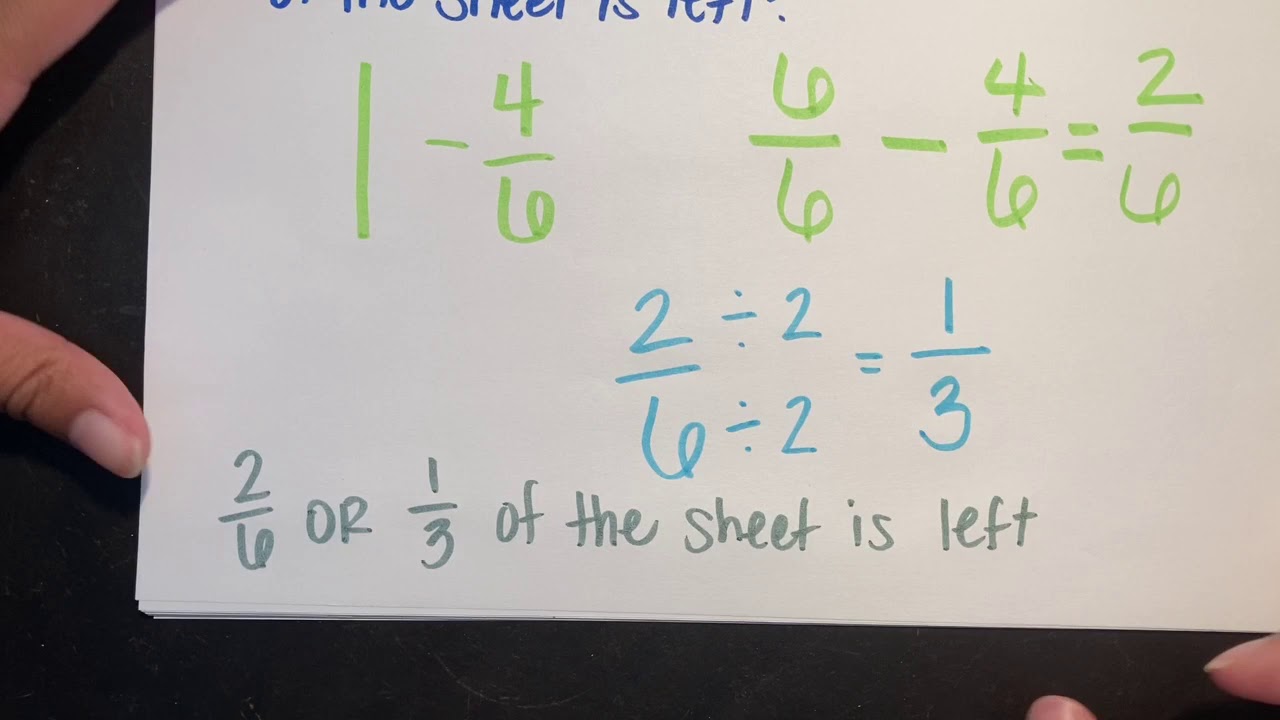 of the sheet is left?
1 - 4/6 6/6 - 4/6 = 2/6
2/6 ÷ 2/÷ 2 = 1/3
2/6 OR 1/3 of the sheet is left